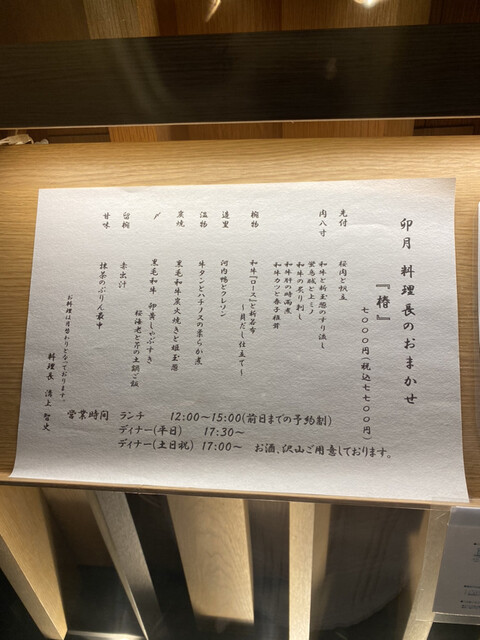 卯月 料理長のおまかせ
『椿』
七〇〇〇円(税込七七〇〇円)
先付 桜肉と抜立
肉八寸 和牛と新玉葱のすり流し
和牛の炙り刺し
和牛肝の時雨煮
和牛カツと春子椎茸
椀物 和牛『ロース』と新若布
〜貝だし仕立て〜
造里 河内鴨とクレソン
温物 牛タンとハチノスの柔らか煮
炭焼 黒毛和牛炭火焼きと姫玉葱
〆 黒毛和牛 卵黄しゃぶすき
桜海老と芹の土鍋ご飯
留椀 赤出汁
甘味 抹茶のぷりん最中
お料理は月替わりとなっております。
料理長 溝上 智史
営業時間 ランチ 12:00〜15:00(前日までの予約制)
ディナー(平日) 17:30〜
ディナー(土日祝) 17:00〜 お酒、沢山ご用意しております。